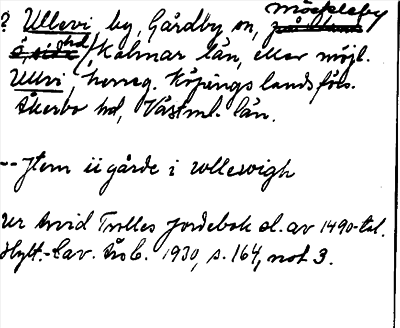 Möckleby
? Ullevi by, Gårdby sn, på Öland
ö. sida hd, Kalmar län, eller möjl.
Ullvi, herreg. Köpings landsförs.
Åkerbo hd, Västml. län.
-- Jtem ii gårde i vlleswigh
Ur Arvid Trolles jordebok sl. av 1490-tal.
Hylt.-Cav. Årsb. 1930, s. 164, not 3.